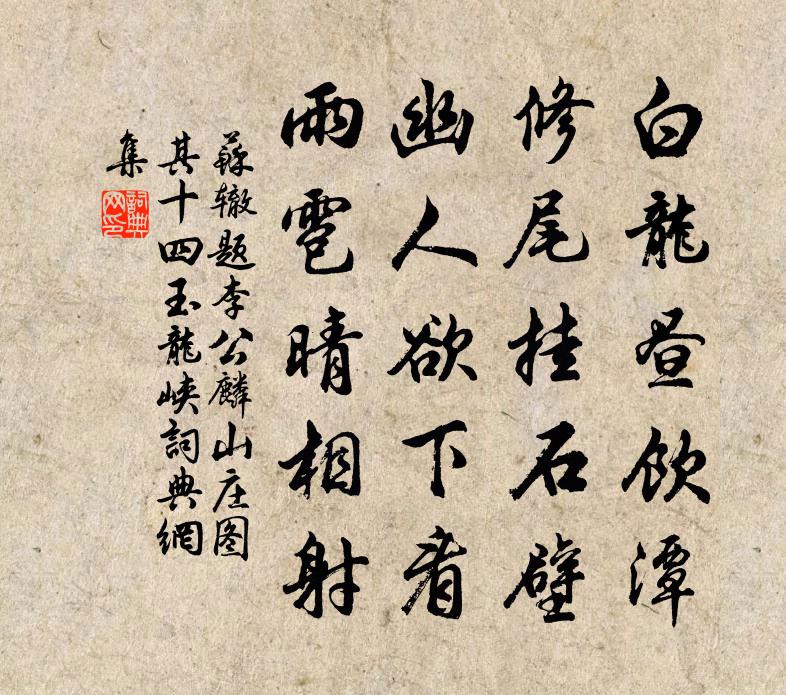 白龍昼飲潭
修尾挂石壁
幽人欲下看
雨雹晴相射
蘇辙题李公麟山庄图
其十四玉龍峡詞典網
集
詞典
网印